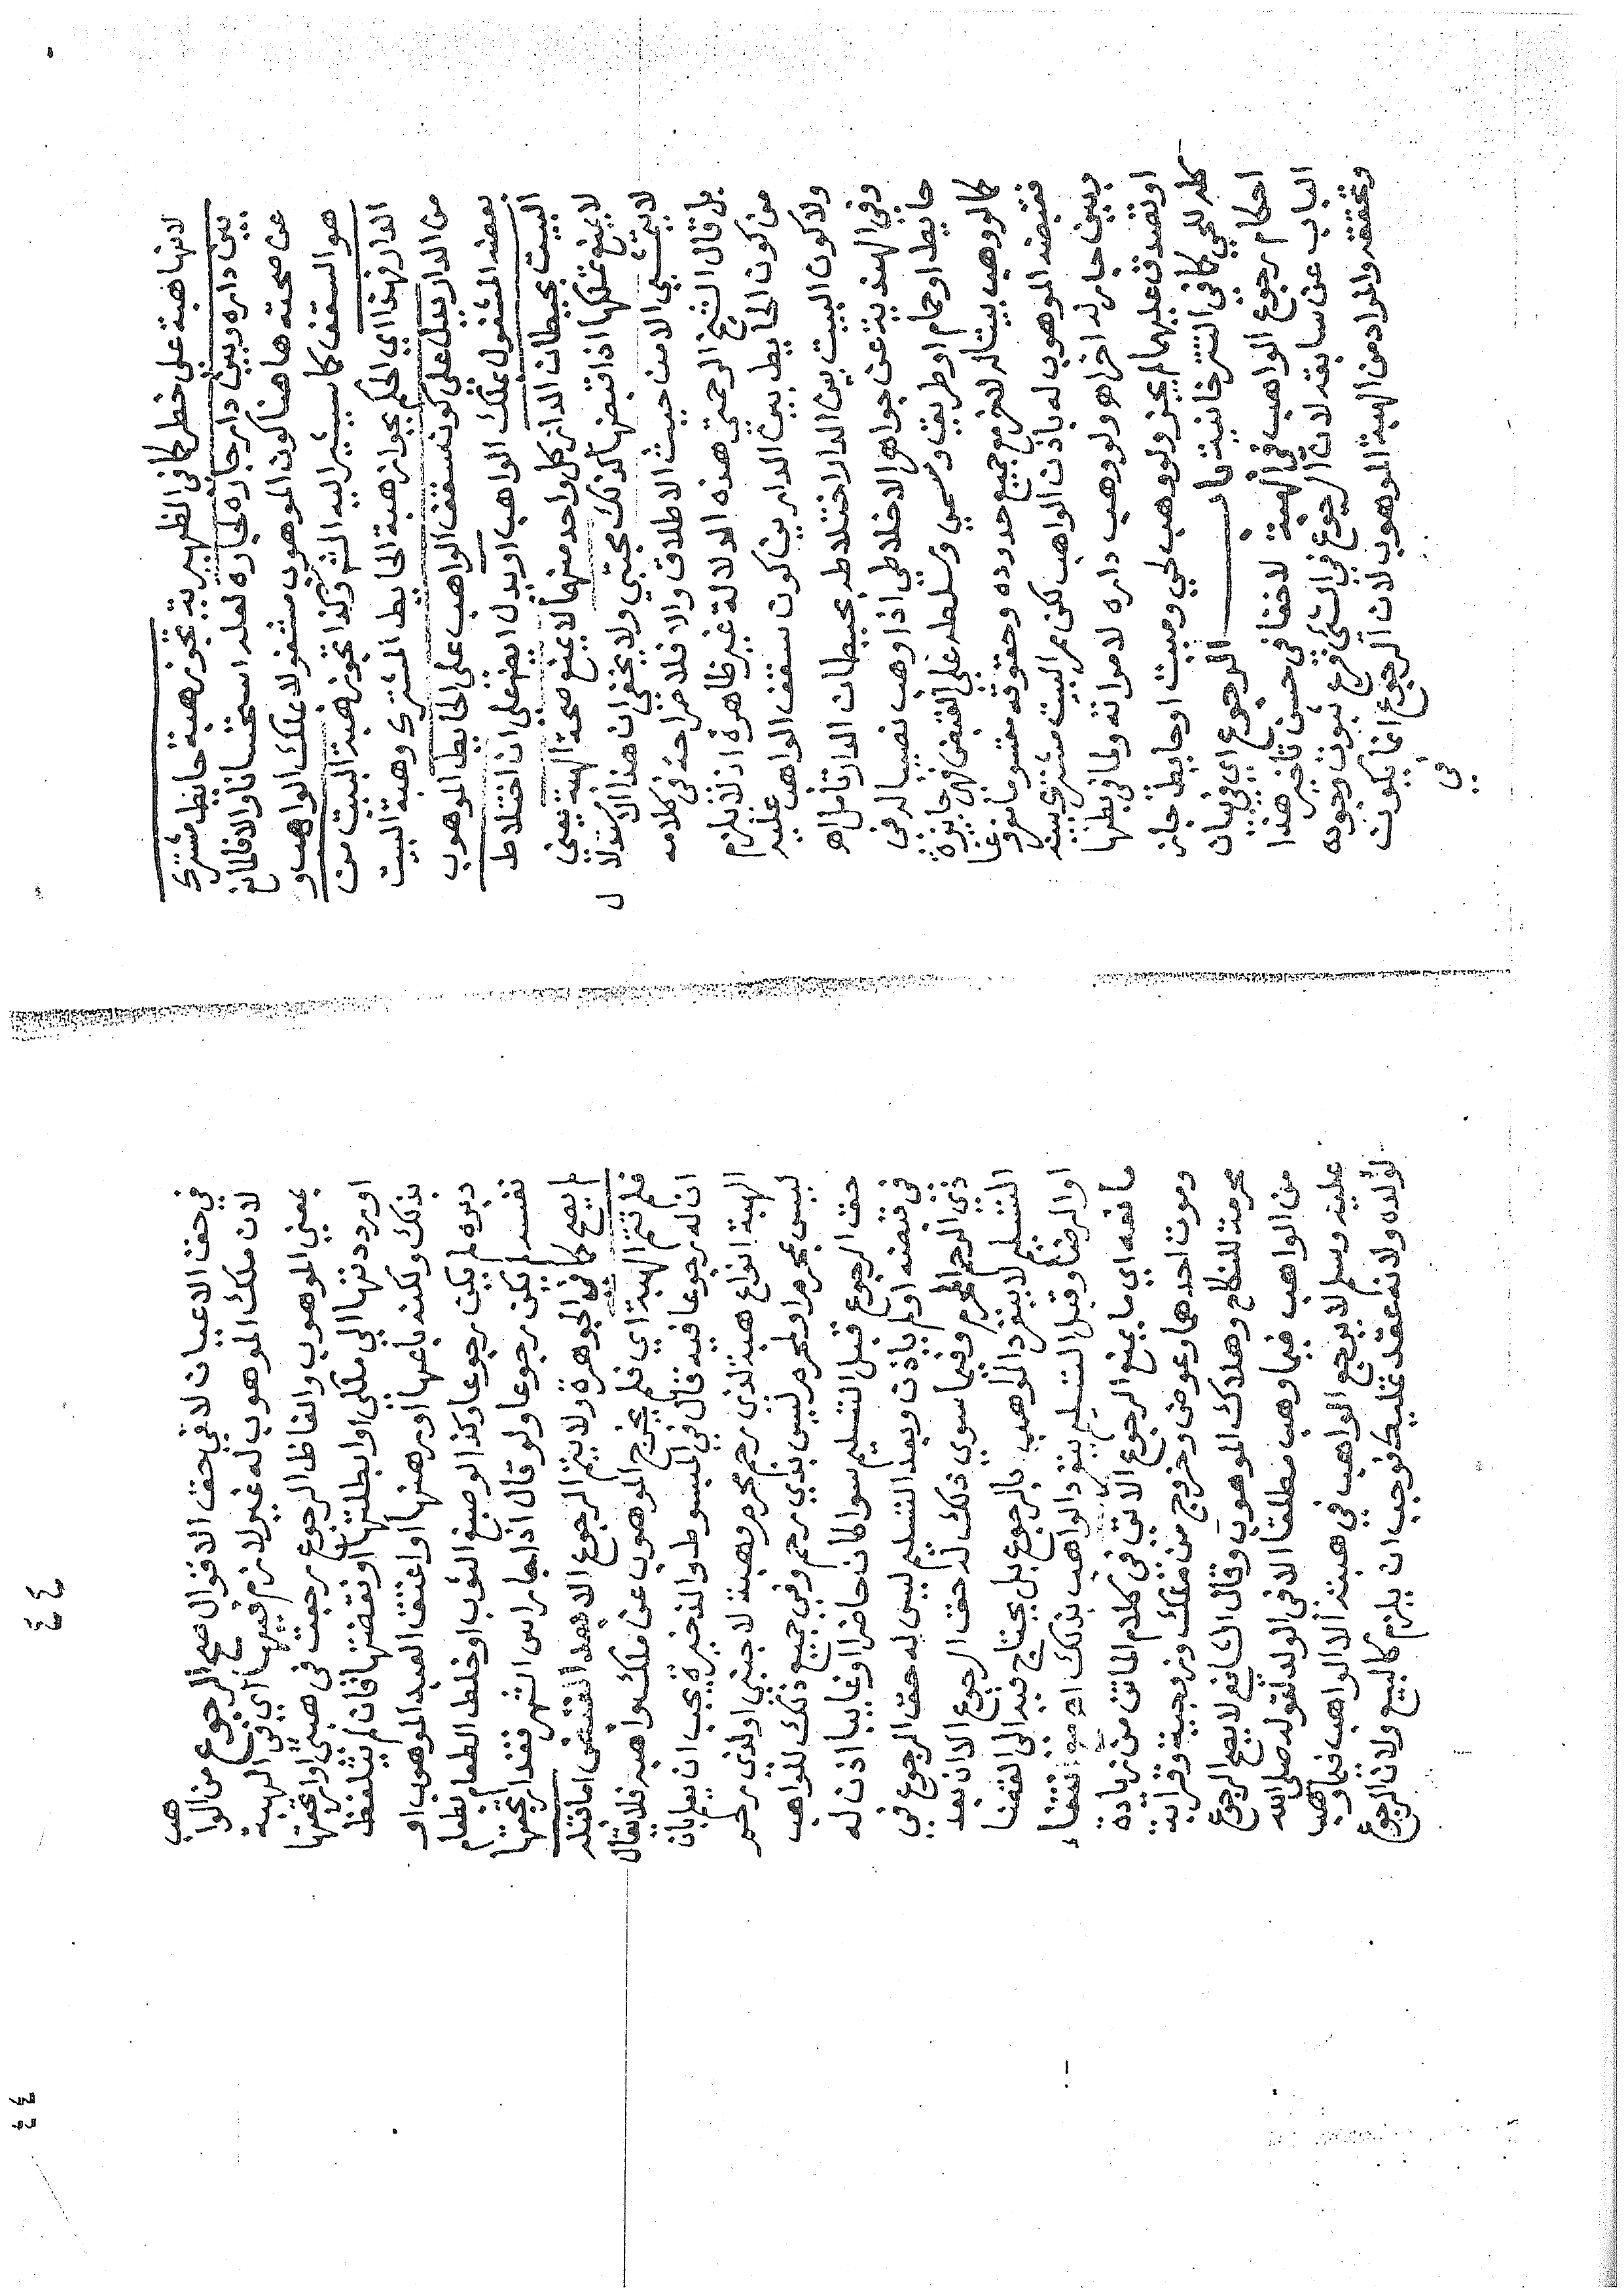 لانها هبة على خطر كما فى الظهيرية تجوز هبة حايط مشترى
بين داره وبين دار جاره لجاره لعله استحسانا والا فالمانع
عن صحته هاهنا كون الموهوب مشغولا بملك الواهب او
هو السقف كما سيشير اليه الش وكذا تجوز هبة البيت من
الدار فهذا اى الحكم بجواز هبة الحايط المشترى وهبة البيت
من الدار يدل على كون سقف الواهب على الحايط الموهوب
بعضه المشغول بملك الواهب او يدل ايضا على ان اختلاط
البيت بحيطان الدار كل واحد منهما لا يمنع صحة الهبة يعنى
لا يمنع تملكها اذا قبضها كذلك مجتبى ولا يخفى ان هذا الاستدلال
لا يتمشى الا من حيث الاطلاق والا فلا صراحة فى كلامه
بل قال الشيخ الرحمتى هذه الدلالة غير ظاهرة اذ لا يلزم
من كون الحايط بين الدارين كون سقف الواهب عليه
ولا كون البيت بين الدار اختلاطه بحيطان الدار تامل اه
وفى الهندية عن جواهر الاخلاطى اذا وهب نصيبا له فى
حايط او حمام او طريق وسمى وسلطه على القبض فهى جايزة
كما لو وهب بيتا له لاخر مع جميع حدوده وحقوقه مقسوما مفرغا
فقبضه الموهوب له باذن الواهب لكن ممر البيت مشترى بينه
وبين جاره له اخر اه ولو وهب داره لامراة ولما فى بطنها
او تصدق عليهما لم يجز ولو وهب لحى وميت او حايط جاز
كله للحى كما فى التترخانية باب الرجوع اى فى بيان
احكام رجوع الواهب فى الهبة لا خفا فى حسن تاخير هذا
الباب عن سابقه لان الرجوع فى الشئ فرع ثبوت وجوده
وتحققه والمراد من الهبة الموهوب لان الرجوع انما يكون
فى
فى حق الاعيان لا فى حق الاقوال صح الرجوع من الواهب
لان ملك الموهوب له غير لازم فيها اى فى الهبة
بمعنى الموهوب والفاظ الرجوع رجعت فى هبتى او ارتجعتها
او رددتها الى ملكى او ابطلتها او نقضتها فان لم يتلفظ
بذلك ولكنه باعها او رهنها او اعتق العبد الموهوب او
دبره لم يكن رجوعا وكذا لو صبغ الثوب او خلط الطعام بطعام
نفسه لم يكن رجوعا ولو قال اذا جا راس الشهر فقد ارتجعتها
لم يصح كما فى الجوهرة ولا يتم الرجوع الا بعد القبض اما قبله
فلم تتم الهبة اى فلم يخرج الموهوب عن ملك واهبه فلا يقال
ان له رجوعا فيه قال فى المبسوط والذخيرة يجب ان يعلم بان
الهبة انواع هبة لذى رحم محرم وهبة لاجنبى او لذى رحم
ليس بمحرم او لمحرم ليس بذى رحم وفى جميع ذلك للواهب
حق الرجوع قبل التسليم سوا كان حاضرا او غايبا اذن له
فى قبضه او لم ياذن وبعد التسليم ليس له حق الرجوع فى
ذى الرحم المحرم وفيما سوى ذلك له حق الرجوع الا ان بعد
التسليم لا ينفرد الواهب بالرجوع بل يحتاج فيه الى القضا
او الرضا وقبل التسليم ينفرد الواهب بذلك اه مع انتفاء
مانعه اى ما يمنع الرجوع الاتى فى كلام الماتن من زيادة
وموت احدهما وعوض وخروج من ملك وزوجية وقرابة
محرمة للنكاح وهلاك الموهوب وقال الشافعى لا يصح الرجوع
من الواهب فيما وهب مطلقا الا فى الولد لقوله صلى الله
عليه وسلم لا يرجع الواهب فى هبته الا الواهب فيما وهب
لولده ولانه عقد تمليك فوجب ان يلزم كالبيع ولان الرجوع
٤٤